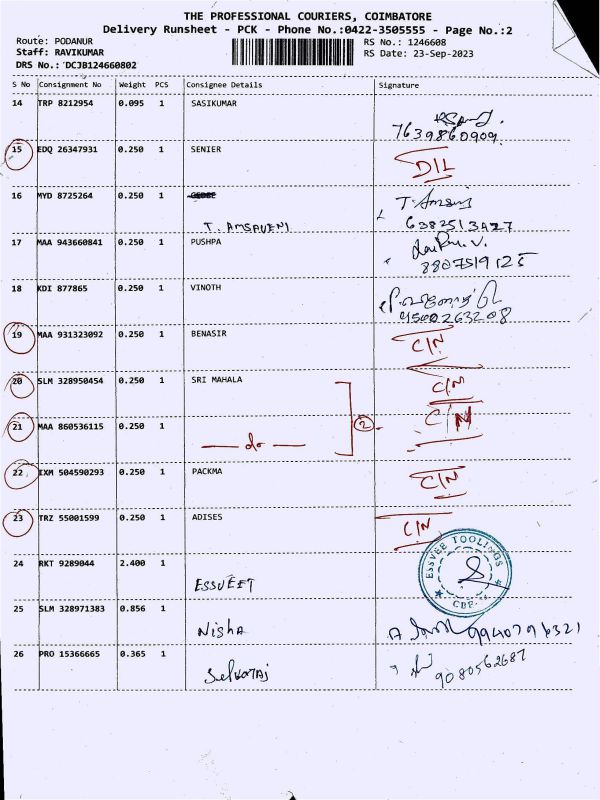 THE PROFESSIONAL COURIERS, COIMBATORE
Delivery Runsheet - PCK - Phone No.:0422-3505555 - Page No.:2
Route: PODANUR
RS No.: 1246608
Staff: RAVIKUMAR
RS Date: 23-Sep-2023
DRS No.: DCJB124660802
S No Consignment No Weight PCS Consignee Details Signature
14 TRP 8212954 0.095 1 SASIKUMAR
7639860909
15 EDQ 26347931 0.250 1 SENIER
D/L
16 MYD 8725264 0.250 1
T. AMSAVENI
17 MAA 943660841 0.250 1 PUSHPA
18 KDI 877865 0.250 1 VINOTH
9500263208
19 MAA 931323092 0.250 1 BENASIR C/N
20 SLM 328950454 0.250 1 SRI MAHALA C/N
21 MAA 860536115 0.250 1 2 C/N
do
22 IXM 504590293 0.250 1 PACKMA C/N
23 TRZ 55001599 0.250 1 ADISES C/N
24 RKT 9289044 2.400 1
ESSVEE TOOLINGS
CBE
25 SLM 328971383 0.856 1
Nisha 9940796321
26 PRO 15366665 0.365 1
Selvaraj 9080562687